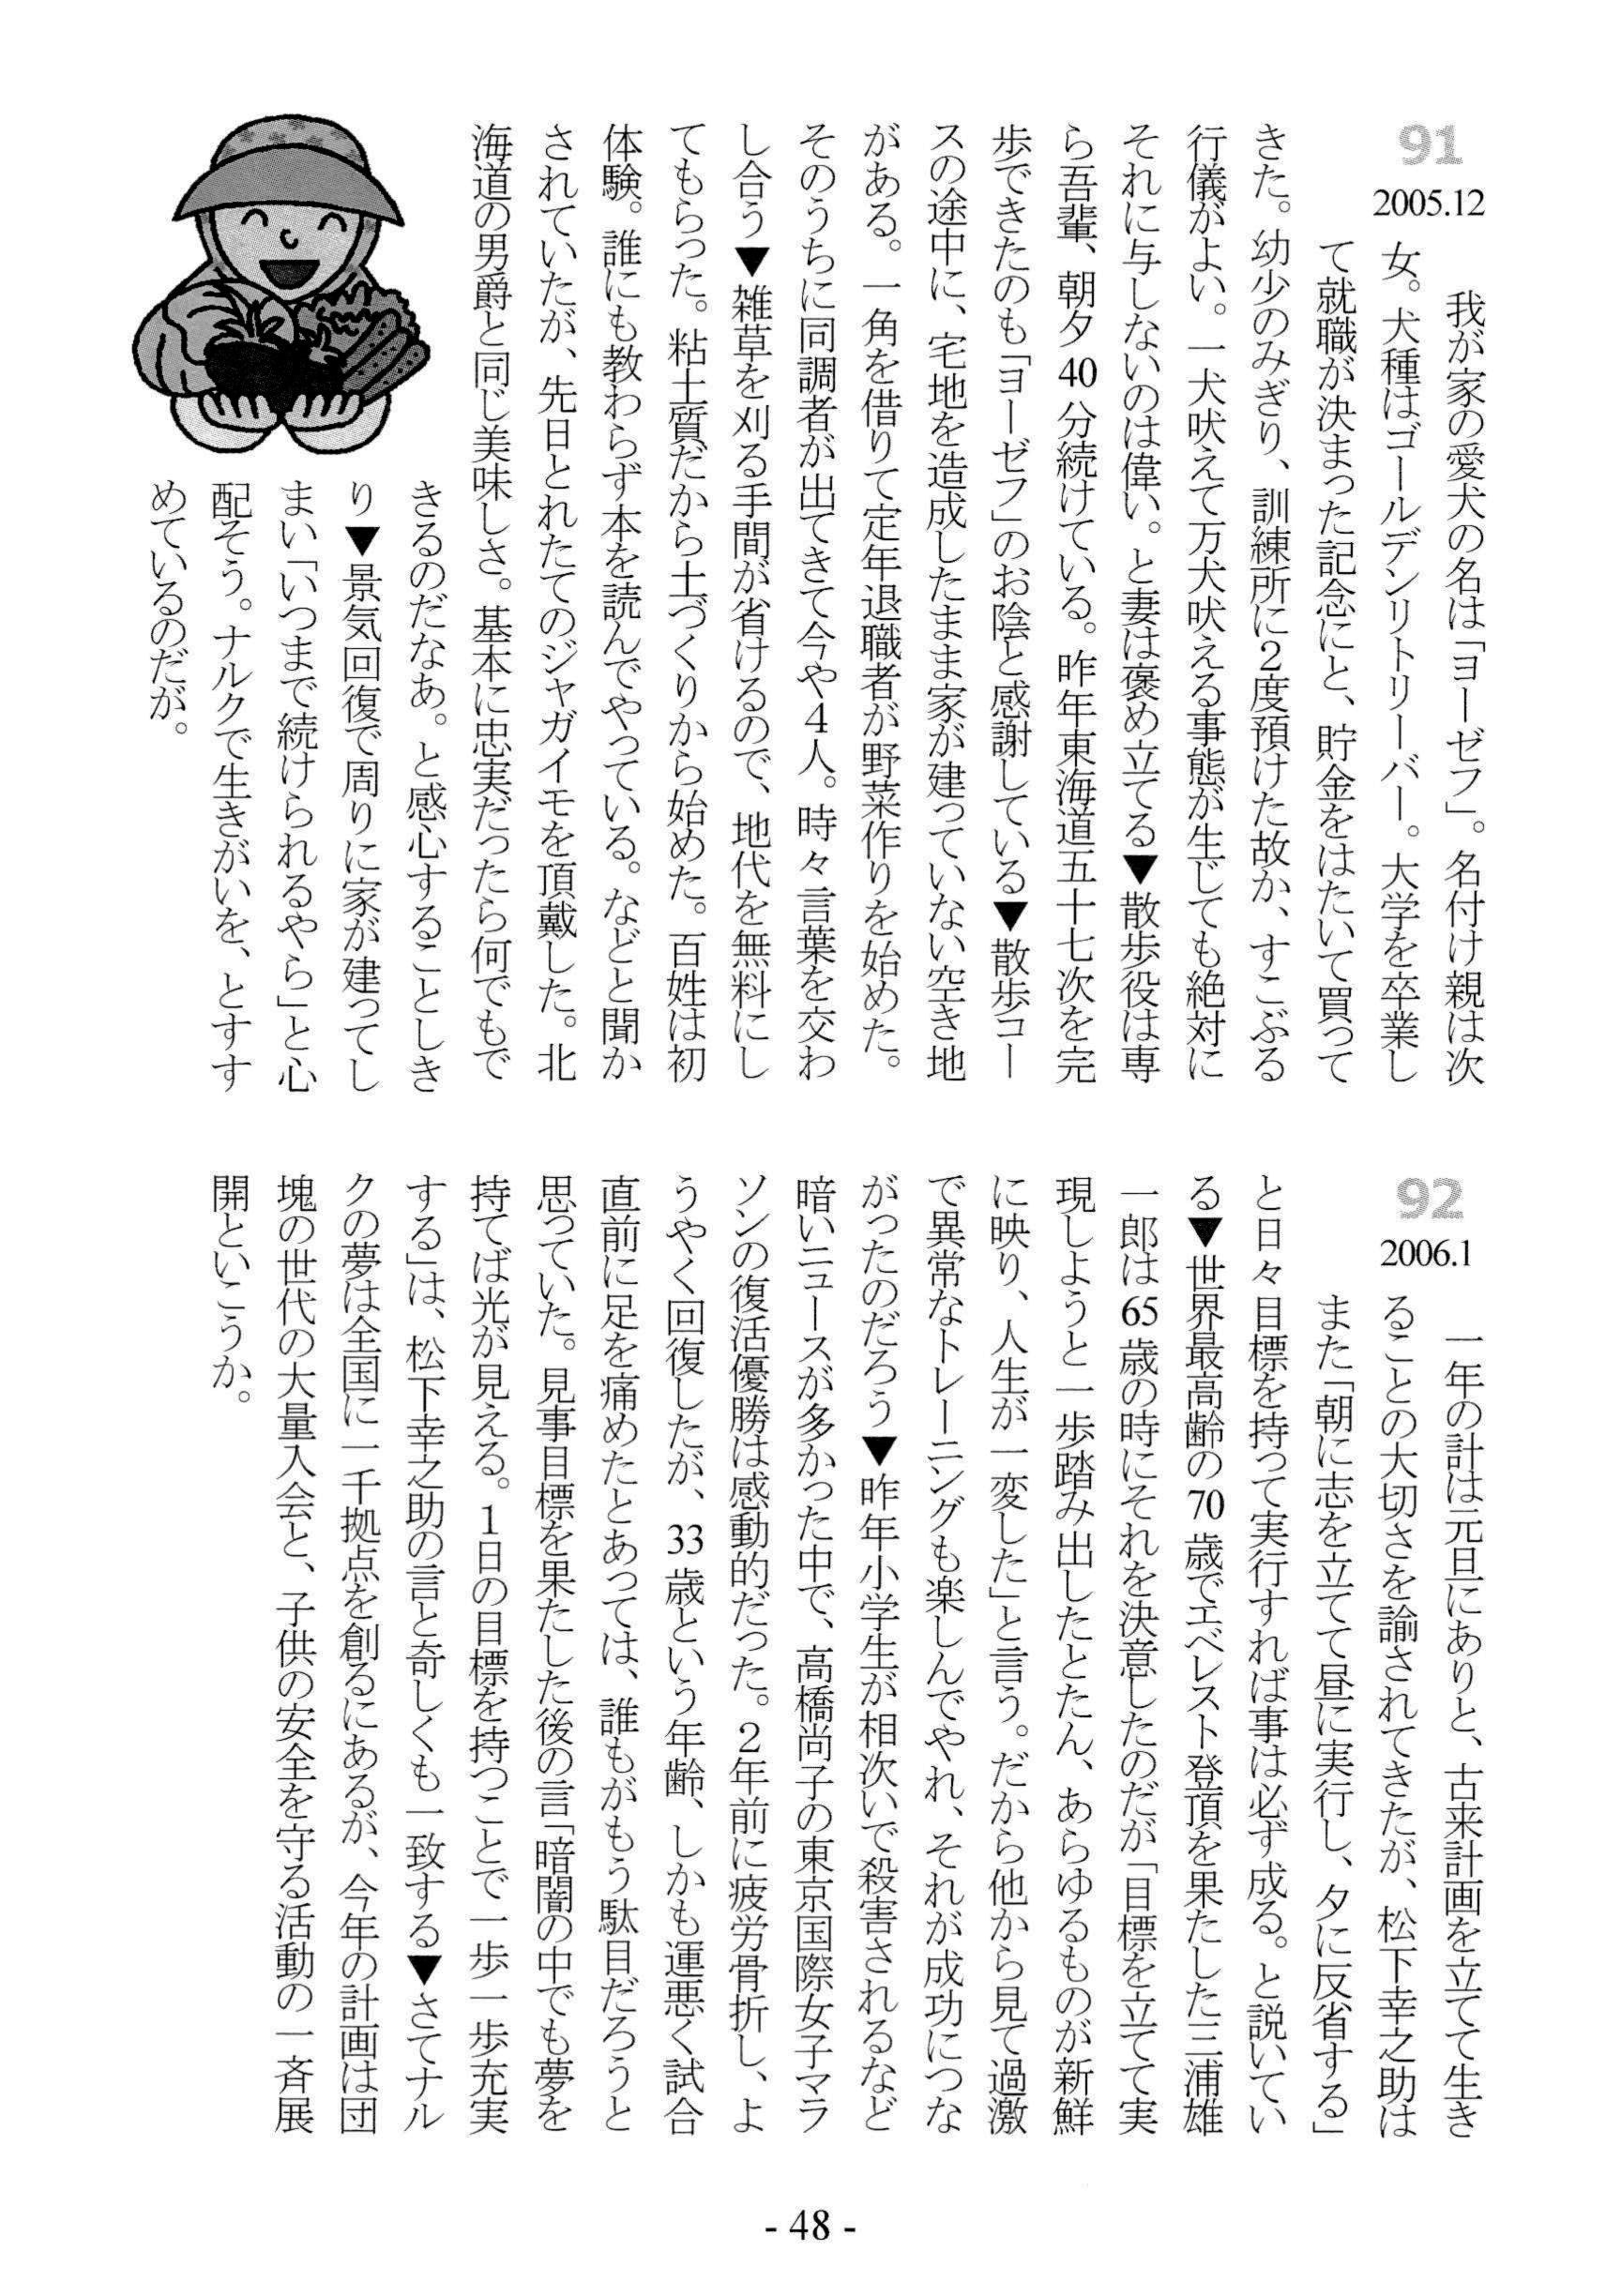 91
2005.12
我が家の愛犬の名は「ヨーゼフ」。名付け親は次
女。犬種はゴールデンリトリーバー。大学を卒業し
て就職が決まった記念にと、貯金をはたいて買って
きた。幼少のみぎり、訓練所に2度預けた故か、すこぶる
行儀がよい。一犬吠えて万犬吠える事態が生じても絶対に
それに与しないのは偉い。と妻は褒め立てる▼散歩役は専
ら吾輩、朝夕40分続けている。昨年東海道五十七次を完
歩できたのも「ヨーゼフ」のお陰と感謝している▼散歩コー
スの途中に、宅地を造成したまま家が建っていない空き地
がある。一角を借りて定年退職者が野菜作りを始めた。
そのうちに同調者が出てきて今や4人。時々言葉を交わ
し合う▼雑草を刈る手間が省けるので、地代を無料にし
てもらった。粘土質だから土づくりから始めた。百姓は初
体験。誰にも教わらず本を読んでやっている。などと聞か
されていたが、先日とれたてのジャガイモを頂戴した。北
海道の男爵と同じ美味しさ。基本に忠実だったら何でもで
きるのだなあ。と感心することしき
り▼景気回復で周りに家が建ってし
まい「いつまで続けられるやら」と心
配そう。ナルクで生きがいを、とすす
めているのだが。
92
2006.1
一年の計は元旦にありと、古来計画を立てて生き
ることの大切さを諭されてきたが、松下幸之助は
また「朝に志を立てて昼に実行し、夕に反省する」
と日々目標を持って実行すれば事は必ず成る。と説いてい
る▼世界最高齢の70歳でエベレスト登頂を果たした三浦雄
一郎は65歳の時にそれを決意したのだが「目標を立てて実
現しようと一歩踏み出したとたん、あらゆるものが新鮮
に映り、人生が一変した」と言う。だから他から見て過激
で異常なトレーニングも楽しんでやれ、それが成功につな
がったのだろう▼昨年小学生が相次いで殺害されるなど
暗いニュースが多かった中で、高橋尚子の東京国際女子マラ
ソンの復活優勝は感動的だった。2年前に疲労骨折し、よ
うやく回復したが、33歳という年齢、しかも運悪く試合
直前に足を痛めたとあっては、誰もがもう駄目だろうと
思っていた。見事目標を果たした後の言「暗闇の中でも夢を
持てば光が見える。1日の目標を持つことで一歩一歩充実
する」は、松下幸之助の言と奇しくも一致する▼さてナル
クの夢は全国に一千拠点を創るにあるが、今年の計画は団
塊の世代の大量入会と、子供の安全を守る活動の一斉展
開といこうか。
- 48 -